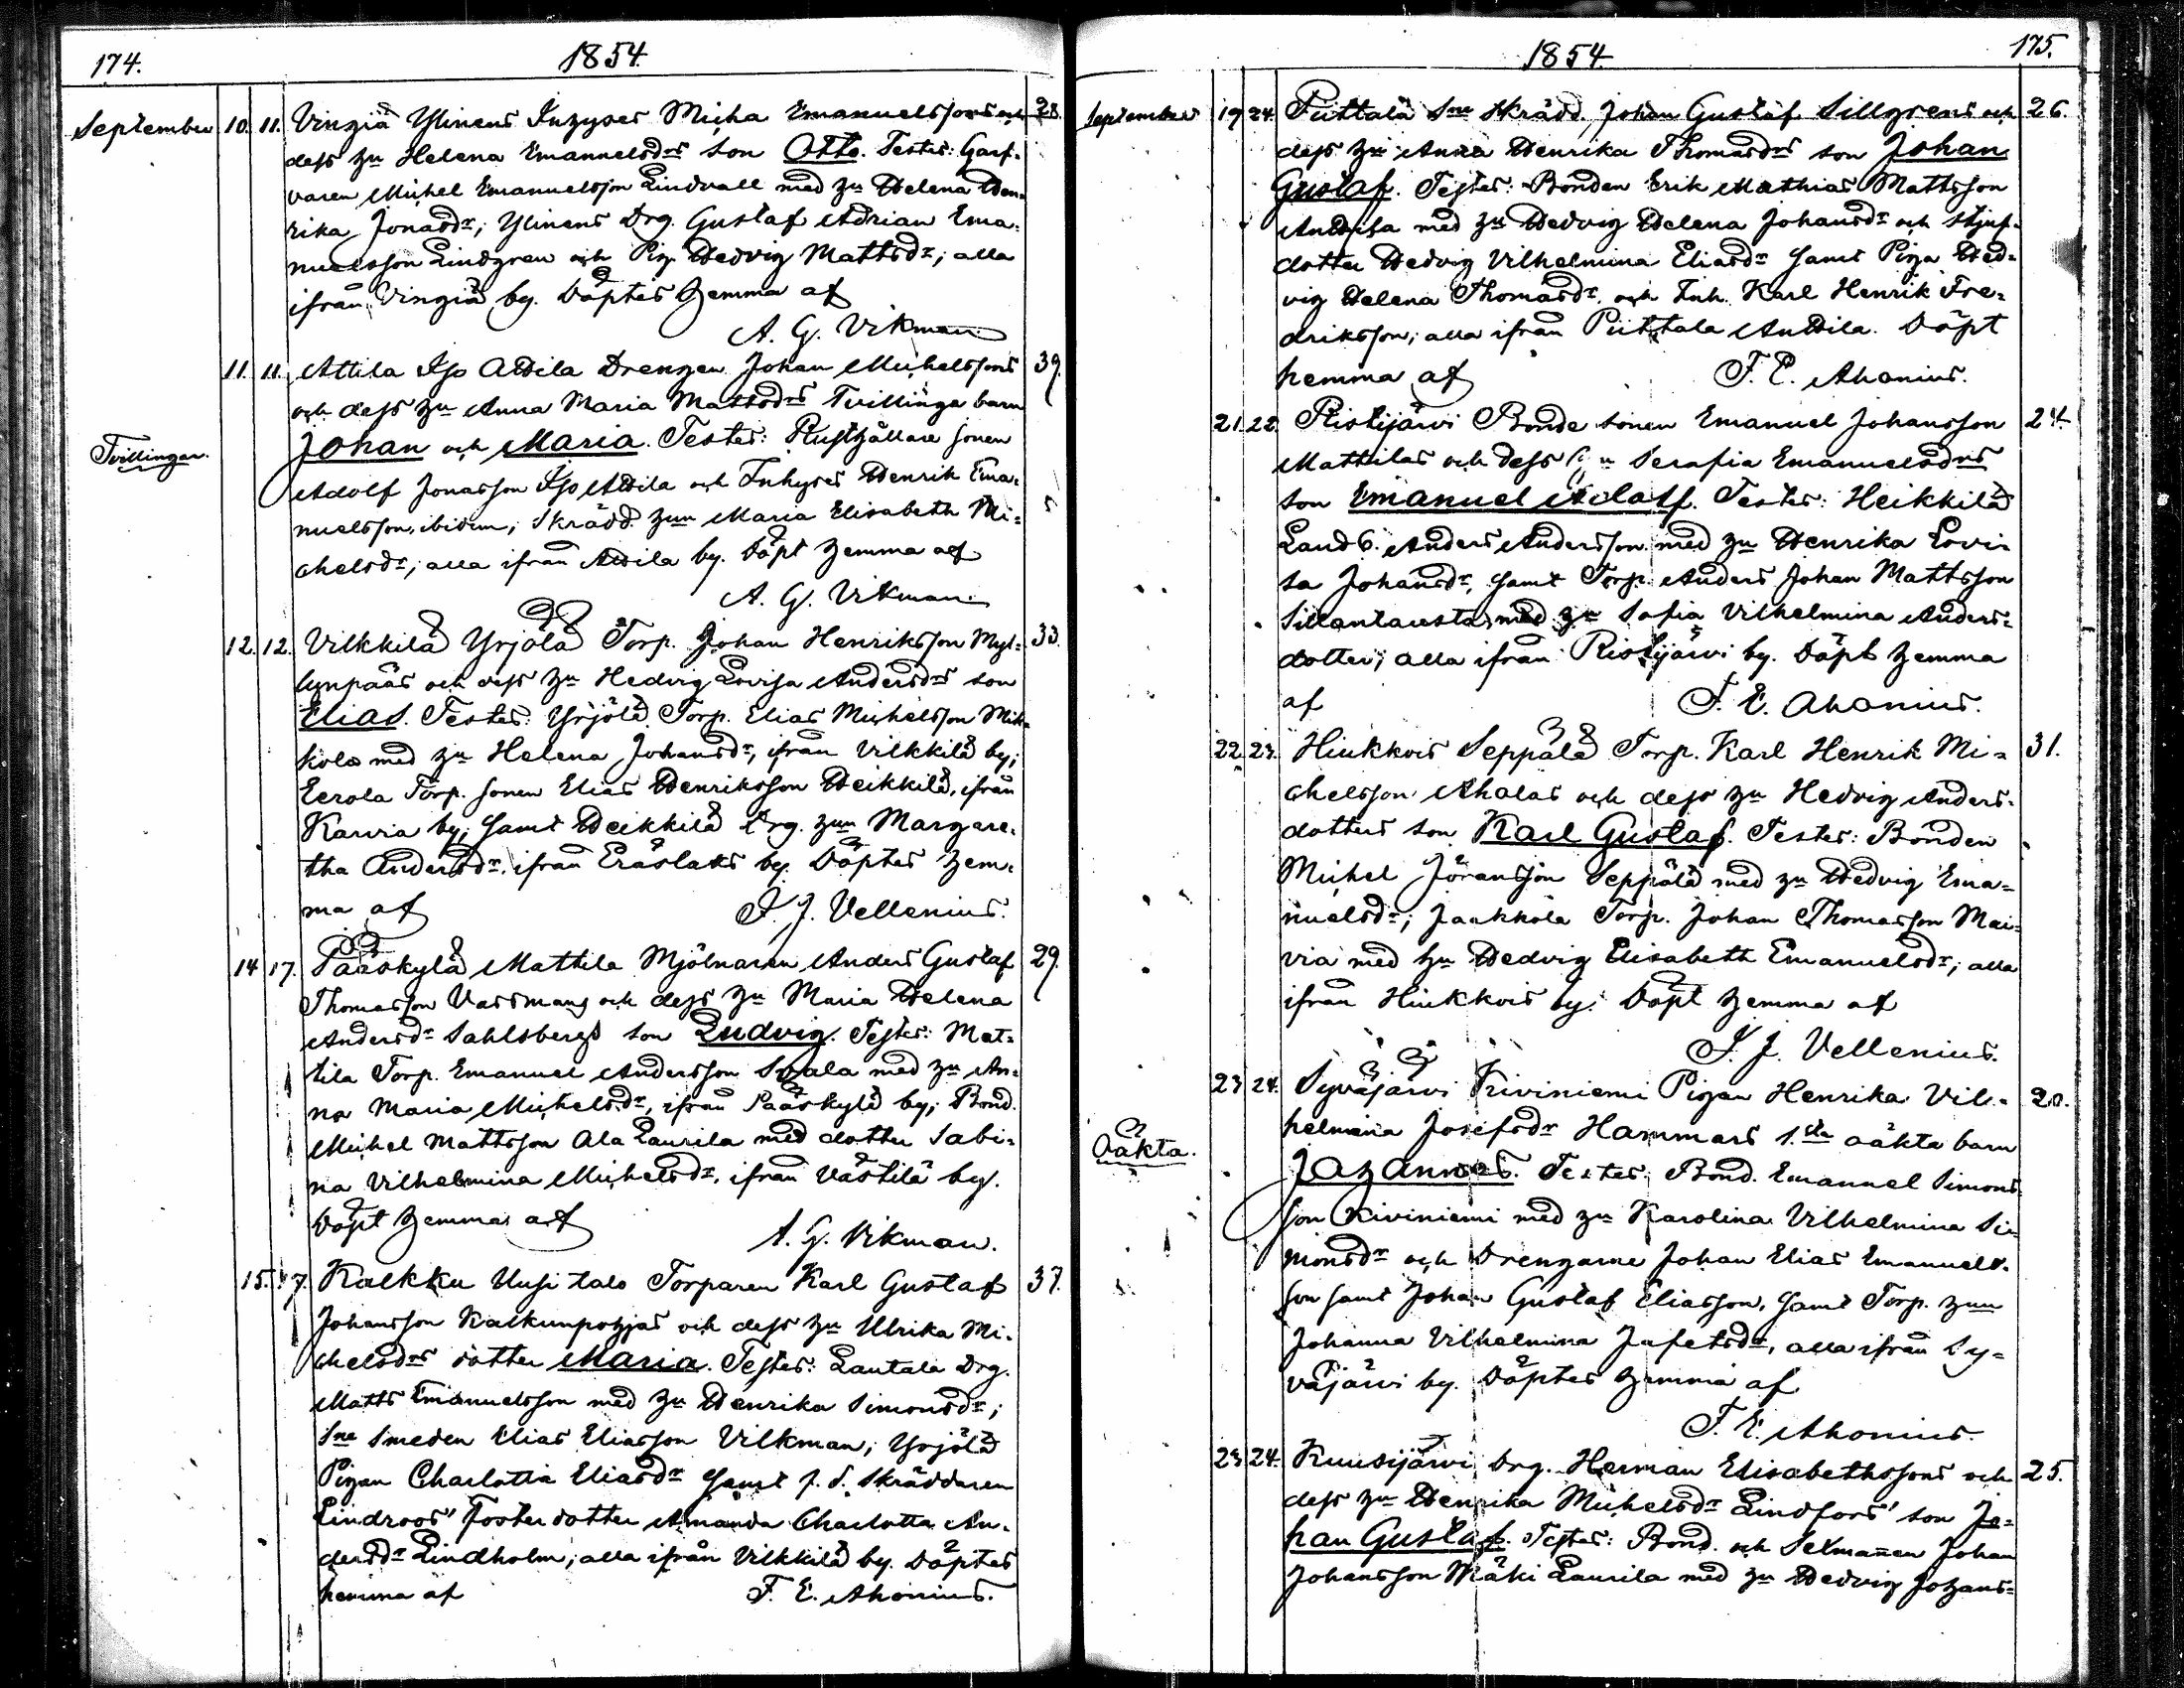 174. 1854.
September 10. 11. Vinziä Ylinens Inhyses Micha Emanuelssons och 28.
dess hu Helena Emanuelsdrs son Otto. Testes: Garf-
varen Michel Emanuelsson Lindvall med hu Helena Hen-
rika Jonasdr; Ylinens Drg. Gustaf Adrian Ema-
nuelsson Lindgren och Pig. Hedvig Mattsdr; alla
ifrån Vinziä by. Döptes hemma af
A. G. Vikman
11. 11. Attila Iso Attila Drengen Johan Michelssons 39.
och dess hu Anna Maria Mattsdrs Tvillinga barn
Tvillingar. Johan och Maria. Testes: Rusthållare sonen
Adolf Jonasson Iso Attila och Inhyses Henrik Ema-
nuelsson, ibidem; Skrädd. hun Maria Elisabeth Mi-
chelsdr; alla ifrån Attila by. Döpt hemma af
A. G. Vikman
12. 12. Vilkkilä Yrjölä Torp. Johan Henriksson Myl- 33.
lynpääs och dess hu Hedvig Lovisa Andersdrs son
Elias. Testes: Yrjölä Torp. Elias Michelsson Mik-
kola med hu Helena Johansdr, ifrån Vilkkilä by;
Eerola Torp. sonen Elias Henriksson Heikkilä, ifrån
Karvia by; samt Heikkilä Drg. hun Margare-
tha Andersdr. ifrån Eräslaks by. Döptes hem-
ma af I. J. Vellenius.
14 17. Pääskylä Mattila Mjölnaren Anders Gustaf 29.
Thomasson Vassmans och dess hu Maria Helena
Andersdr Sahlsbergs son Ludvig. Testes: Mat-
tila Torp. Emanuel Andersson Sorala med hu An-
na Maria Michelsdr, ifrån Pääskylä by; Bond.
Michel Mattsson Ala Laurila med dotter Sabi-
na Vilhelmina Michelsdr. ifrån Västilä by.
Döpt hemma af
A. G. Vikman.
15. 17. Kalkku Uusi talo Torparen Karl Gustaf 37.
Johansson Kalkunpohjas och dess hu Ulrika Mi-
chelsdrs dotter Maria. Testes: Lautala Drg.
Matts Emanuelsson med hu Henrika Simonsdr;
Sne Smeden Elias Eliasson Vilkman; Yrjölä
Pigan Charlotta Eliasdr samt f. d. Skräddaren
Lindroos' Fosterdotter Amanda Charlotta An-
dersdr Lindholm; alla ifrån Vilkkilä by. Döptes
hemma af F. E. Ahonius.
1854. 175.
September 19 24. Piittala Sne Skrädd. Johan Gustaf Sillgrens och 26.
dess hu Anna Henrika Thomasdrs son Johan
Gustaf. Testes: Bonden Erik Mathias Mattsson
Anttila med hu Hedvig Helena Johansdr och Stjuf-
dotter Hedvig Vilhelmina Eliasdr samt Piga Hed-
vig Helena Thomasdr. och Inh. Karl Henrik Fre-
driksson; alla ifrån Piittala Anttila. Döpt
hemma af F. E. Ahonius.
21 22. Ristijärvi Bonde sonen Emanuel Johansson 24.
Mattilas och dess hu Serafia Emanuelsdrs
son Emanuel Adolf. Testes: Heikkilä
Landb. Anders Andersson med hu Henrika Lovi-
sa Johansdr, samt Torp. Anders Johan Mattsson
Sillantausta med hu Sofia Vilhelmina Anders-
dotter; alla ifrån Ristijärvi by. Döpt hemma
af F. E. Ahonius.
22. 23. Hiukkois Seppälä Torp. Karl Henrik Mi- 31.
chelsson Ahalas och dess hu Hedvig Anders-
dotters son Karl Gustaf. Testes: Bonden
Michel Jöransson Seppälä med hu Hedvig Ema-
nuelsdr; Jaakkola Torp. Johan Thomasson Mai-
via med hu Hedvig Elisabeth Emanuelsdr; alla
ifrån Hiukkois by. Döpt hemma af
I. J. Vellenius.
23 24. Syväjärvi Kiviniemi Pigan Henrika Vil- 20.
helmina Josefsdr Hammars 1.sta oäkta barn
Oäkta. Johannes. Testes: Bond. Emanuel Simons-
son Kiviniemi med hu Karolina Vilhelmina Si-
monsdr och Drengarne Johan Elias Emanuels-
son samt Johan Gustaf Eliasson, samt Torp. hun
Johanna Vilhelmina Jafetsdr, alla ifrån Sy-
väjärvi by. Döptes hemma af
F. E. Ahonius.
23 24. Kuusijärvi Drg. Herman Elisabethssons och 25.
dess hu Henrika Michelsdr Lindfors' son Jo-
han Gustaf. Testes: Bond. och Sexmannen Johan
Johansson Mäki Laurila med hu Hedvig Johans-